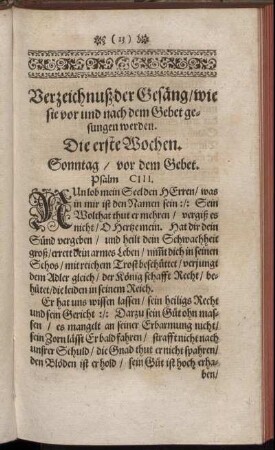 (15)
Verzeichnuß der Gesäng/ wie
sie vor und nach dem Gebet ge-
sungen werden.
Die erste Wochen.
Sonntag / vor dem Gebet.
Psalm CIII.
NUn lob mein Seel den HErren/ was
in mir ist den Namen sein :/: Sein
Wolthat thut er mehren / vergiß es
nicht/ O Hertze mein. Hat dir dein
Sünd vergeben / und heilt dein Schwachheit
groß/ errett dein armes Leben / nimt dich in seinen
Schos/ mit reichem Trost beschüttet/ verjungt
dem Adler gleich/ der König schafft Recht/ be-
hütet/ die leiden in seinem Reich.
Er hat uns wissen lassen/ sein heiligs Recht
und sein Gericht :/: Darzu sein Güt ohn mas-
sen / es mangelt an seiner Erbarmung nicht/
sein Zorn lässt Er bald fahren/ strafft nicht nach
unsrer Schuld/ die Gnad thut er nicht spahren/
den Blöden ist er hold / sein Güt ist hoch erha-
ben/